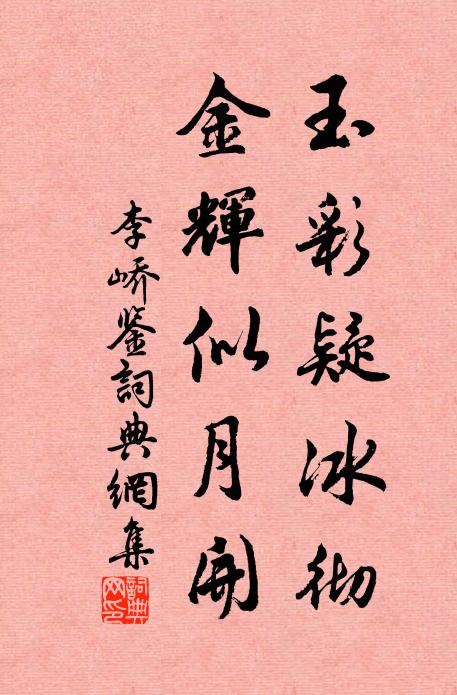 玉彩疑冰彻
金輝似月開
李嶠鉴詞典網集
詞典网印